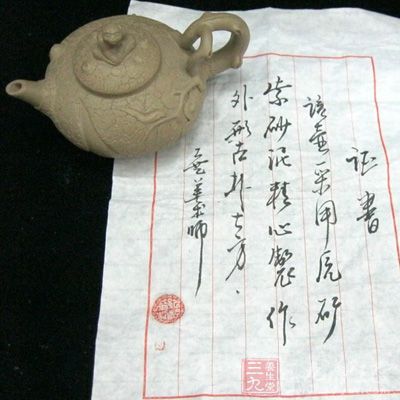 证書
该壶采用原矿
紫砂泥精心製作
外形古朴大方、
美术师
養生堂
三九